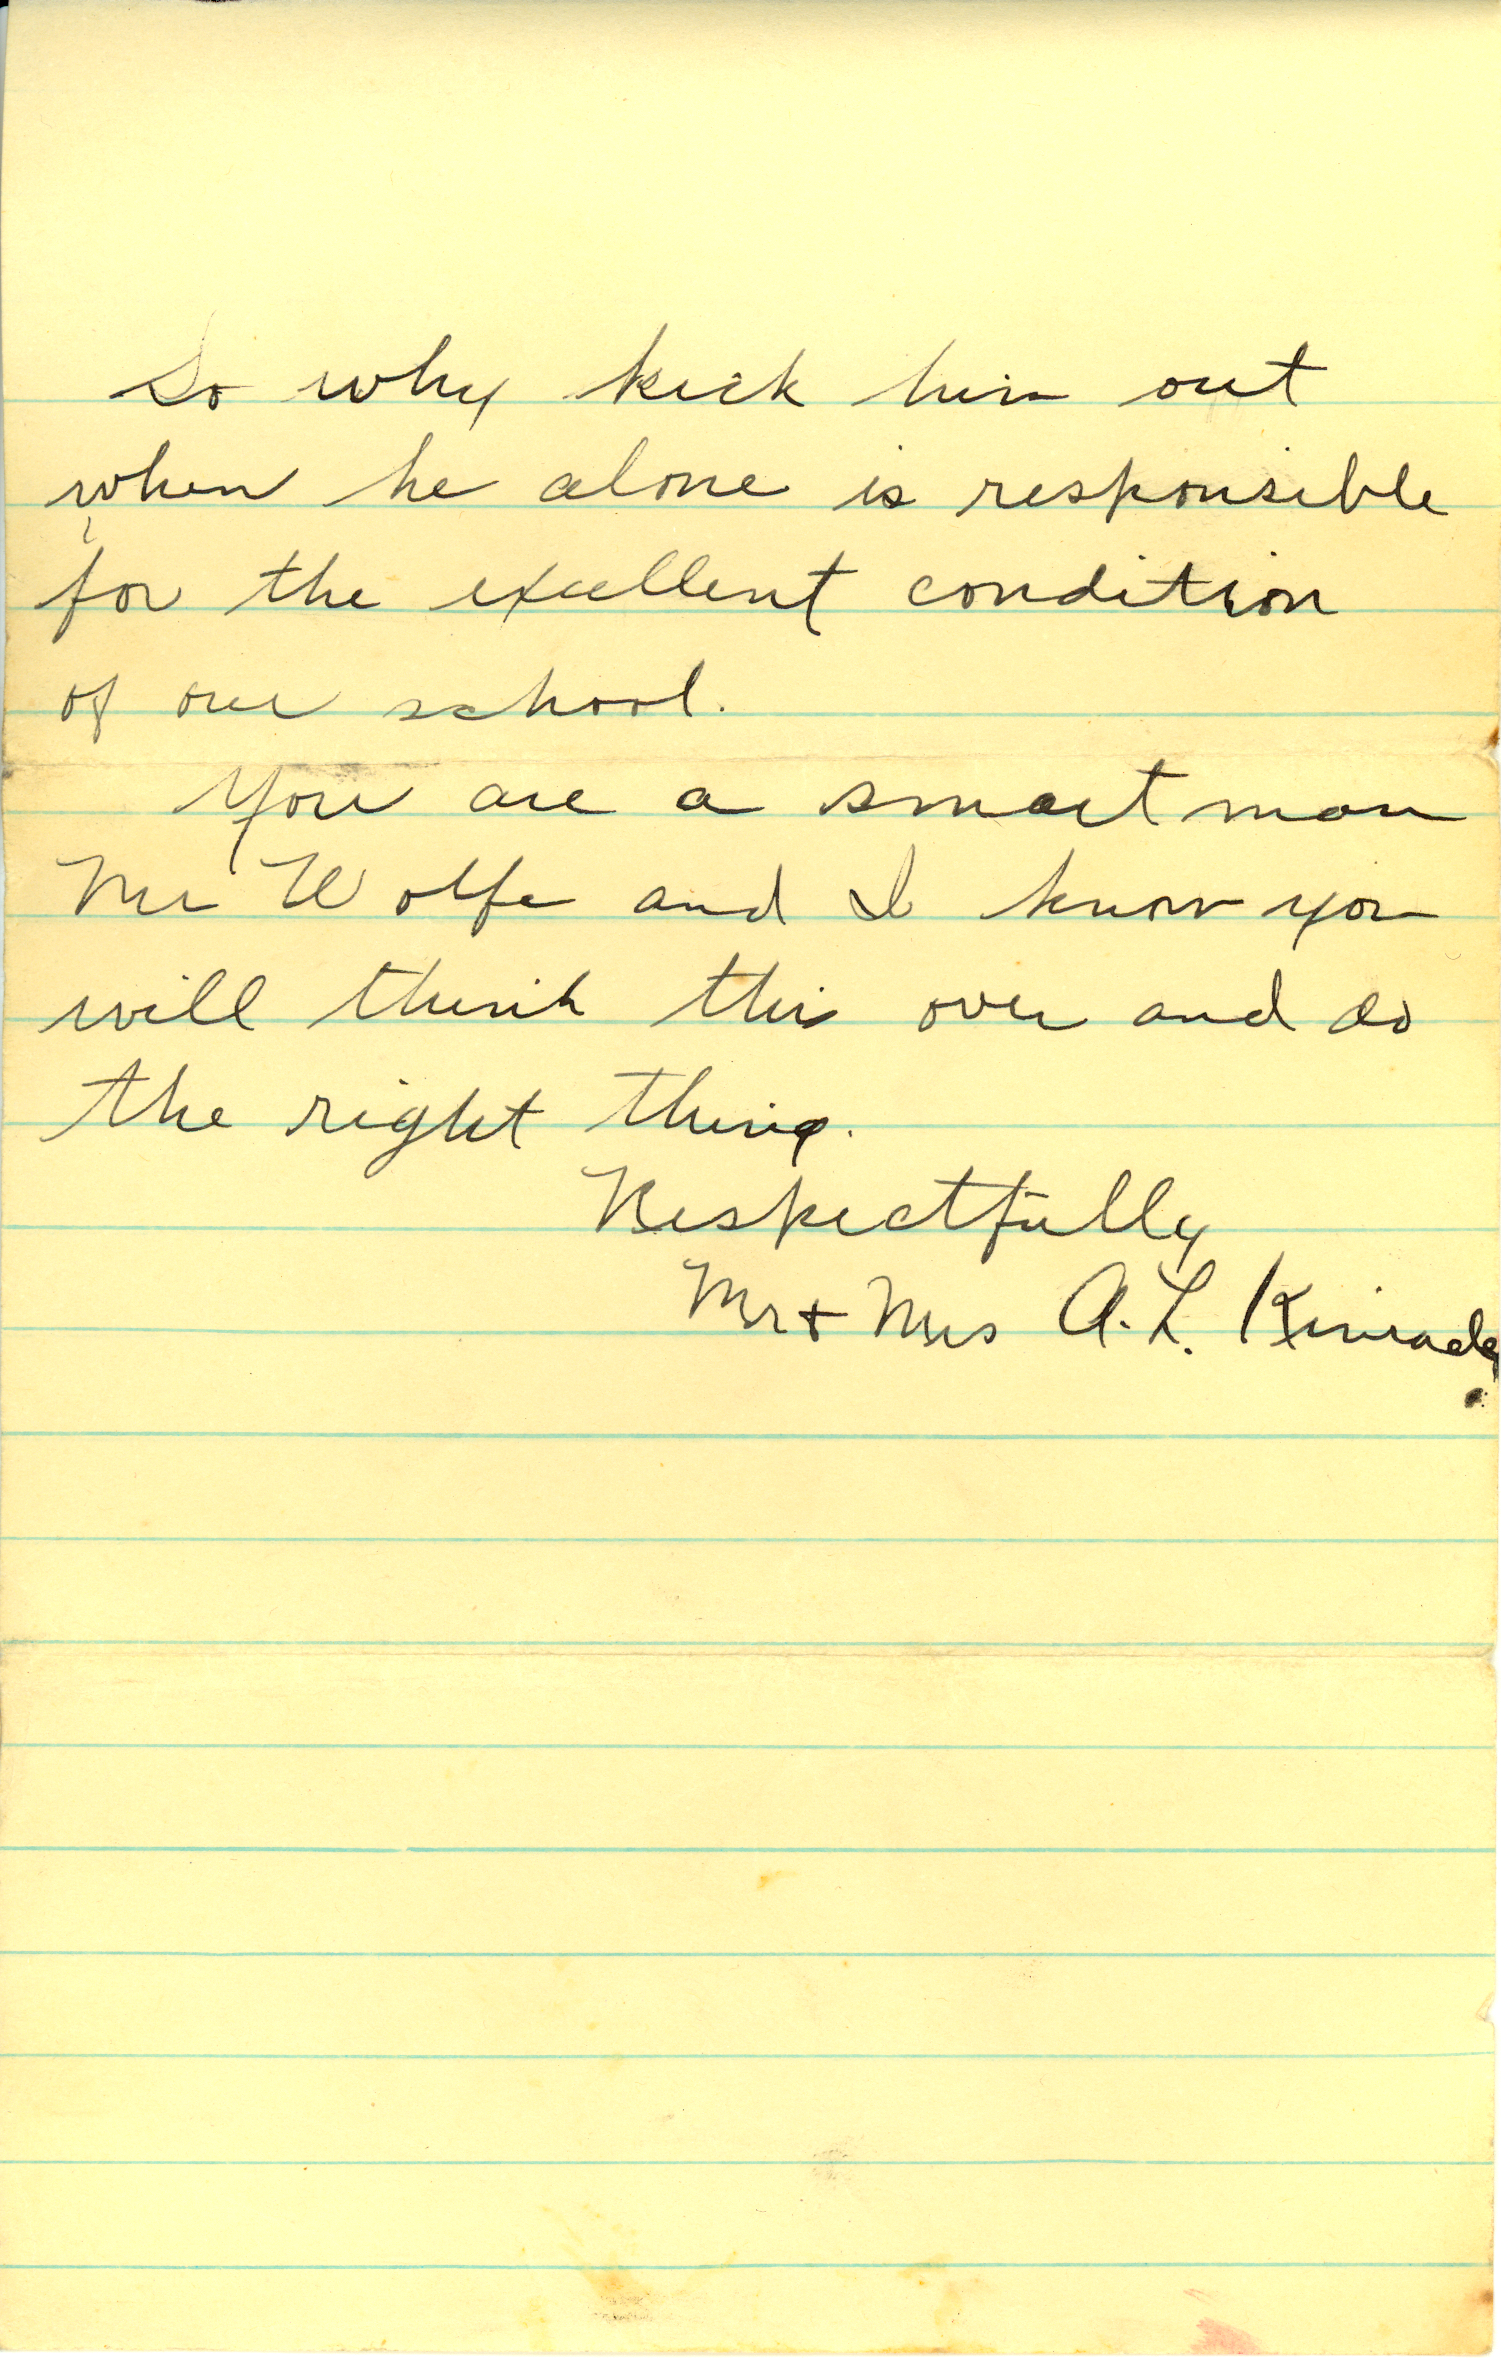 So why kick him out
when he alone is responsible
for the excellent condition
of our school.
You are a smart man
Mr Wolfe and I know you
will think this over and do
the right thing.
Respectfully
Mr + Mrs A. L.